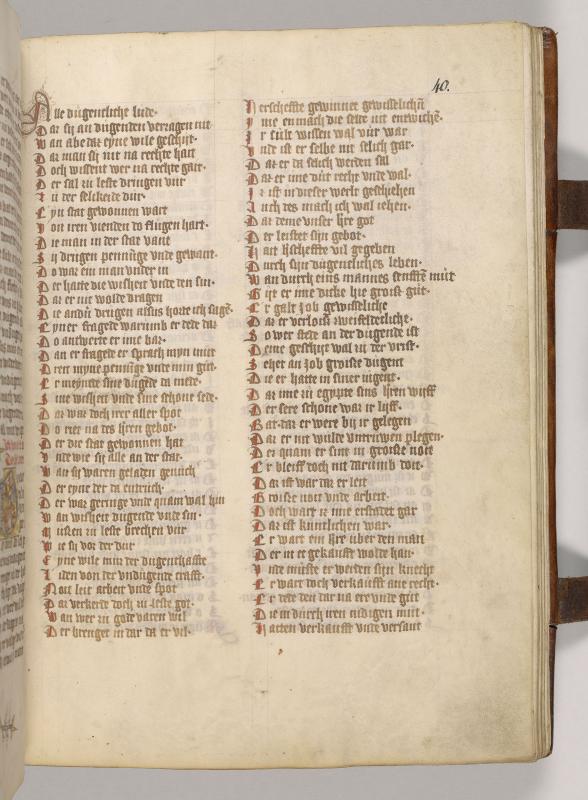 40.
Alle dugentliche lude.
Dar sy an dugenden vertzagen nit
Wan abe dar eyne wile geschiet.
Dar man sy nit na rechte hait
Doch wissent wer na rechte gait.
Der sal zu leste dringen vur
Zu der selicheide dur.
Eyn stat gewonnen wart
Von iren vienden do flugen hart.
Die man in der stat vant
Sy drugen pennige vnde gewant.
Do war ein man vnder in
Der hatte die wisheit vnde den sin.
Dar er nit wolde dragen
Eyner fragede warumb er dede dar
Do antworte er ime bar.
Dan er fragete er sprach myn mut
Dren myne pennige vnde min gut.
Er meynte sine dugede da mede.
Sine wisheit vnde sine schone sede.
Dar war doch irer aller spot
Do rief na des hren gebot.
Der die stat gewonnen hat
Vnde wie sy alle an der stat.
Wan sy waren geladen genuch
Der eyne der da entruch.
Der war geringe vnde quam wal hin
Wan wisheit dugende vnde sin.
Mussen zu leste brechen vur
Wie sy vor der dur
Eyne wile mit der dugenthaffte
Liden von der vndugende crafft.
Noit leit arbeit vnde spot
Dar verkerde doch zu leste got.
Wan wer zu gode varen wil
Der brenget in dar da er vil.
Herscheffte gewinnet gewisselichen
Yme en mach die selde nit entwichen.
Ir sult wissen wal vur war
Vnde ist er selbe nit selich gar.
Dar er da selich werden sal
Dar er ime dut recht vnde wal.
Ir ist in dieser werlt geschiehen
Auch des mach ich wal iehen.
Dar deme vnser hre got
Der leistet sijn gebot.
Hait hscheffte vil gegeben
Durch sijn dugentliches leben.
Wan durch eins mannes senfften mut
Git er ime dicke hie groist gut.
Er galt Job gewisseliche
Dar er verlois zweifeldecliche.
So wer stede an der dugende ist
Deme geschiet wal zu der vrist.
Sehet an Job groisse dugent
Die er hatte in siner iugent.
Dar ime zu egypte sins hren wijff
Der sere schone war ir lijff.
Bat dar er were by ir gelegen
Dar er nit wulde vntruwen plegen.
Der quam er sint in groisse noit
Er bleiff doch nit darumb doit.
Dar ist war dar er leit
Groisse noit vnde arbeit.
Doch wart ir ime erstadet gar
Dar ist kuntlichen war.
Er wart ein hre uber den man
Der in et gekaufft wolde han.
Vnde muste er werden sijn knecht
Er wart doch verkaufft ane recht.
Er dede den dar na ere vnde gut
Die in durch iren nidigen mut.
Hatten verkaufft vnde versant